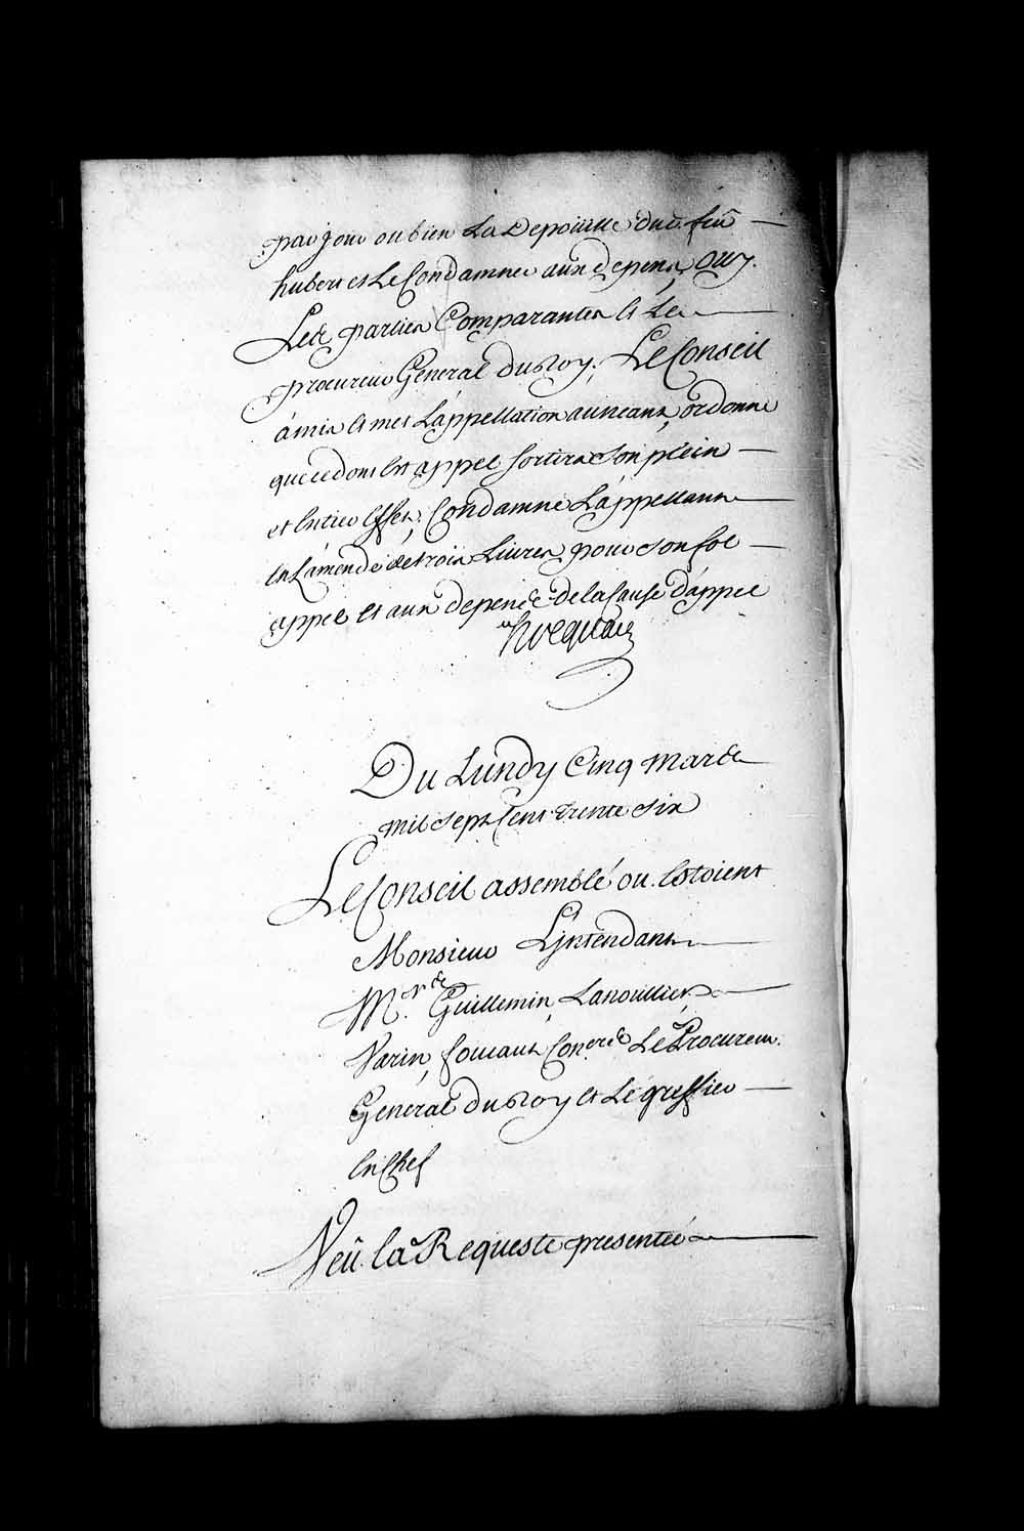 par jour ou bien La Depoüille dud. feû
hubert et Le Condamner aux depens, Ouy
Lesd. parties Comparantes Et Le
procureur General du Roy; Le Conseil
à mis Et met L'appellation au neant, ordonne
que ce dont Est appel sortira son plein
et Entier Effet; Condamne L'appellant
En L'amende de trois Livres pour son fol
appel Et aux depens de la Cause d'appel
hocquart
Du Lundy Cinq mars
mil sept Cent trente six
Le Conseil assemblé ou Estoient
Monsieur L'jntendant
M.rs Guillemin, Lanoüillier,
Varin, foucault, Con.ers Le Procureur
General du Roy Et Le greffier
En Chef
Veû la Requeste presentée